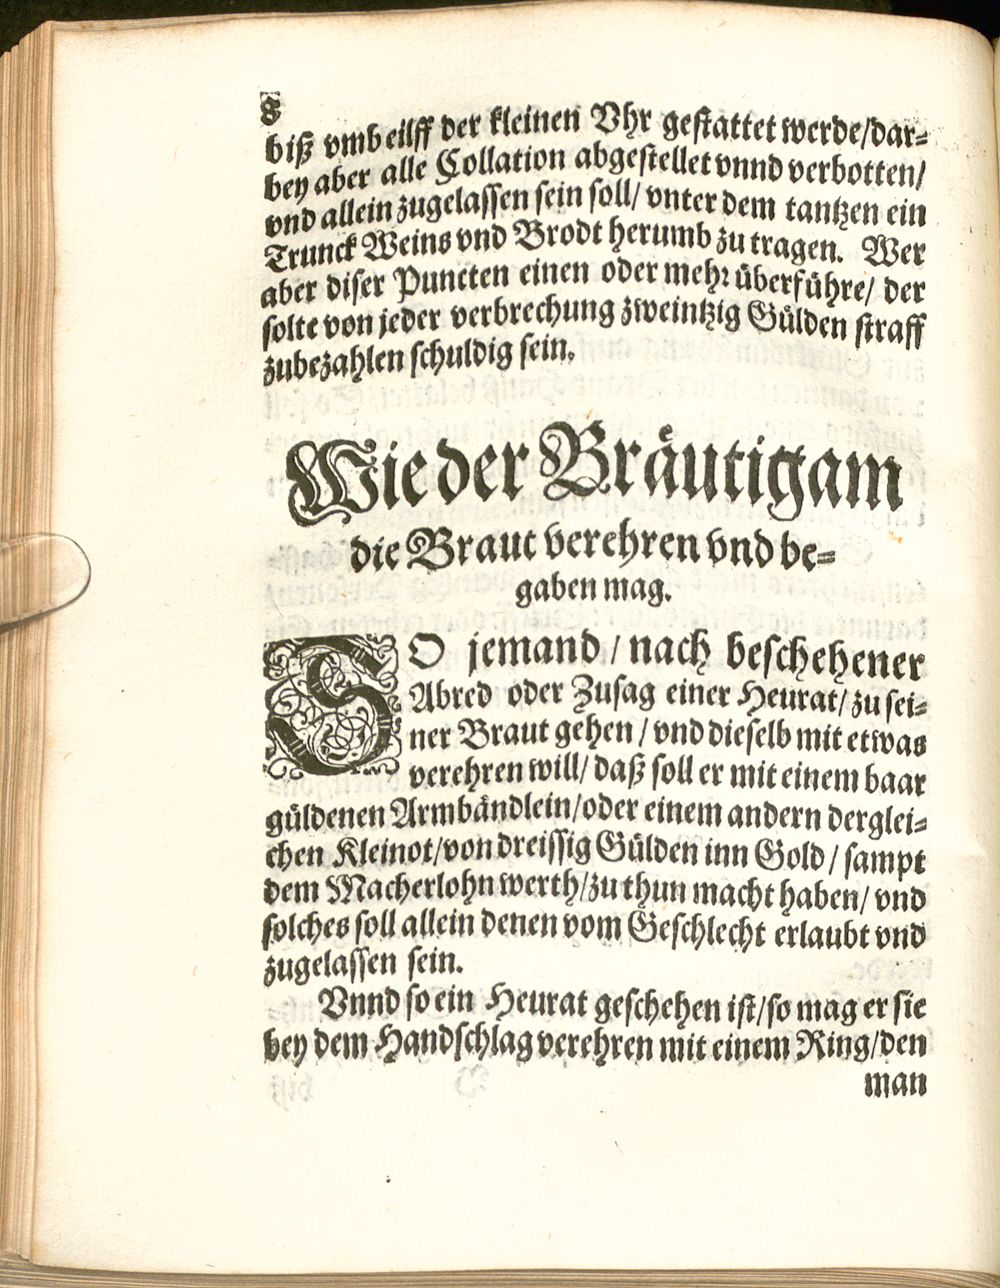 8
biß vmb eilff der kleinen Vhr gestattet werde/dar-
bey aber alle Collation abgestellet vnnd verbotten/
vnd allein zugelassen sein soll/ vnter dem tantzen ein
Trunck Weins vnd Brodt herumb zu tragen. Wer
aber diser Puncten einen oder mehr überführe/ der
solte von jeder verbrechung zweintzig Gülden straff
zubezahlen schuldig sein.
Wie der Bräutigam
die Braut verehren vnd be-
gaben mag.
SO jemand/ nach beschehener
Abred oder Zusag einer Heurat/ zu sei-
ner Braut gehen/ vnd dieselb mit etwas
verehren will/ daß soll er mit einem baar
güldenen Armbändlein/oder einem andern derglei-
chen Kleinot/von dreissig Gülden inn Gold/ sampt
dem Macherlohn werth/zu thun macht haben/ vnd
solches soll allein denen vom Geschlecht erlaubt vnd
zugelassen sein.
Vnnd so ein Heurat geschehen ist/so mag er sie
bey dem Handschlag verehren mit einem Ring/den
man